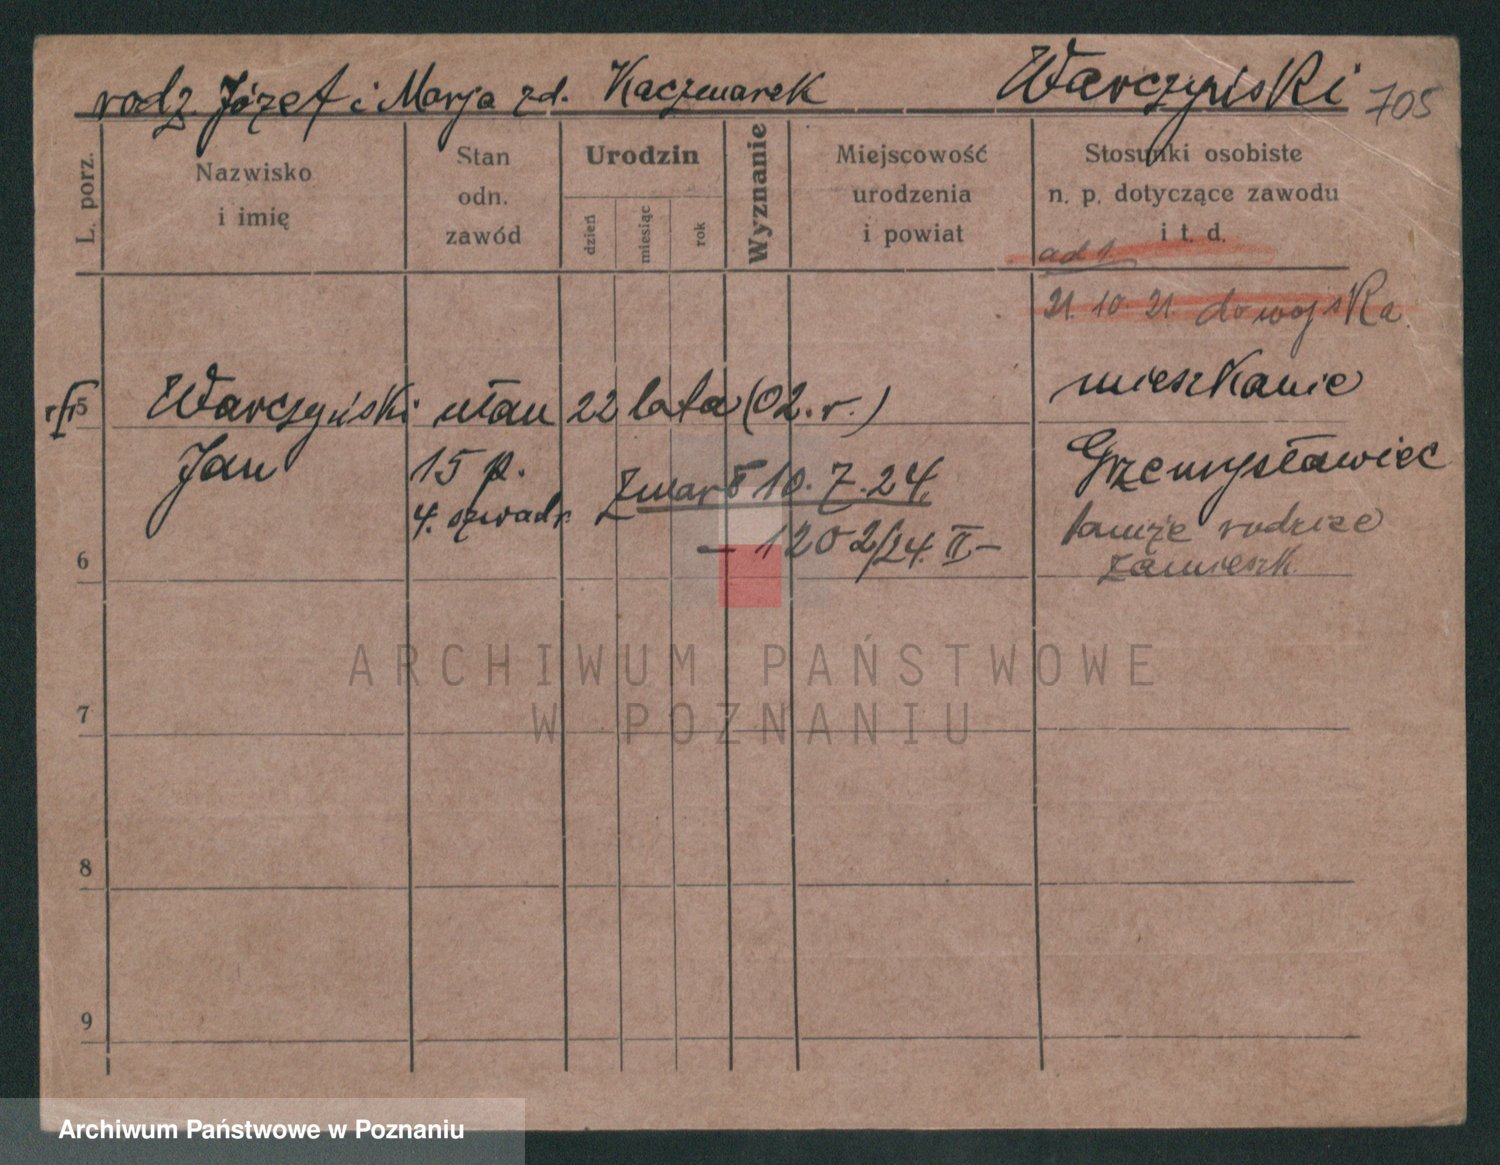 rodz. Józef i Marja zd. Kaczmarek Warczyński 705
L. porz.
Nazwisko
i imię
Stan
odn.
zawód
Urodzin
dzień
miesiąc
rok
Wyznanie
Miejscowość
urodzenia
i powiat
Stosunki osobiste
n. p. dotyczące zawodu
i t. d.
ad 1.
21. 10. 21. do wojska
5 Warczyński ułan 22 lata (02. r.) mieszkanie
Jan 15 p. Zmarł 10. 7. 24. Grzemysławiec
4. szwadr. tamże rodzice
6 – 1202/24. II – zamieszk.
7
8
9
ARCHIWUM PAŃSTWOWE
W POZNANIU
Archiwum Państwowe w Poznaniu